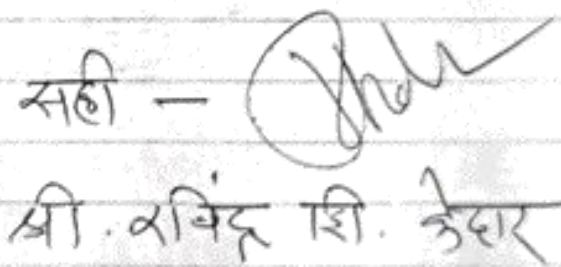 सही -
श्री. रविंद्र शि. केदार